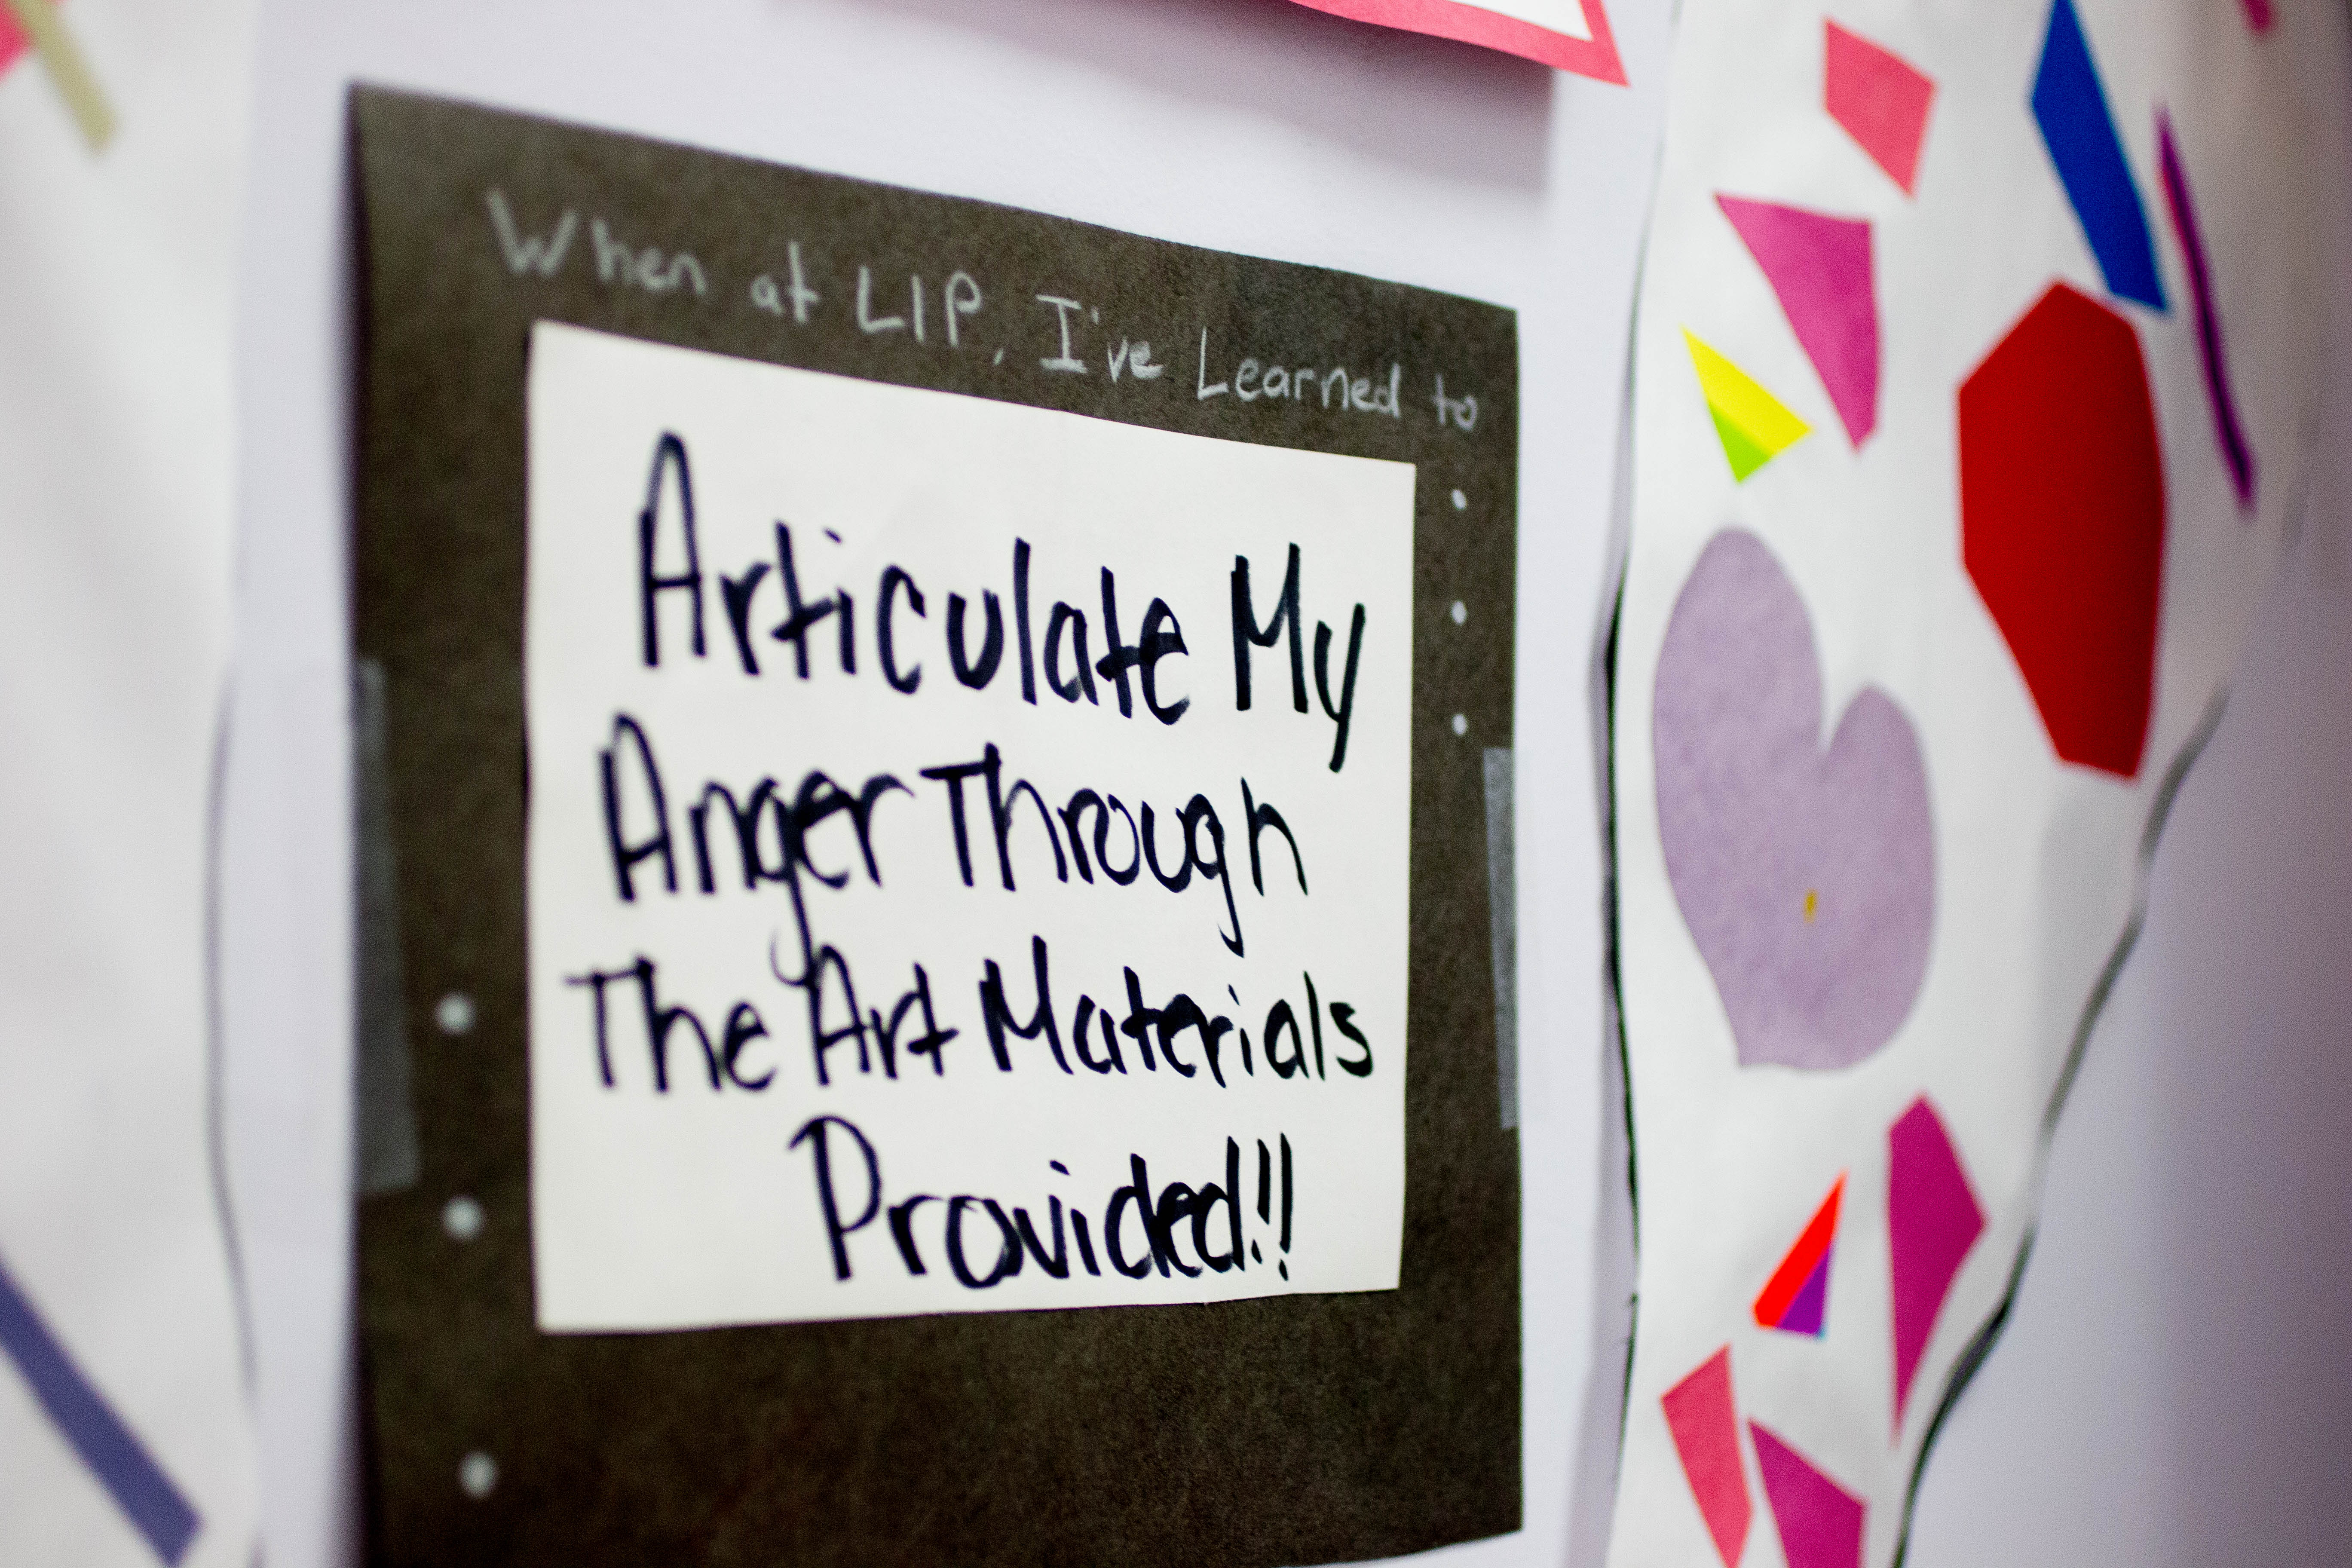 When at LIP, I've Learned to
Articulate My
Anger Through
The Art Materials
Provided!!